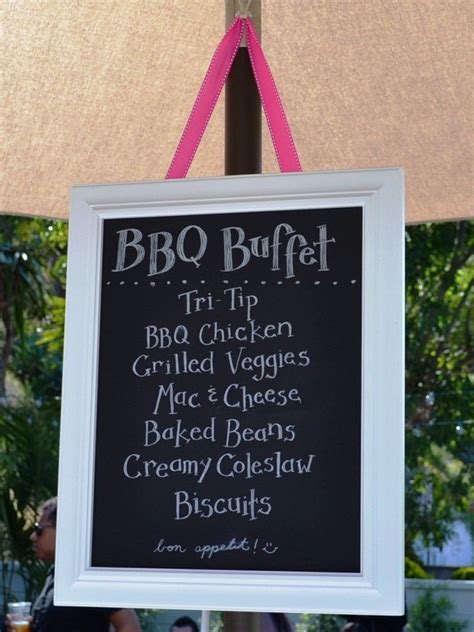 BBQ Buffet
Tri-Tip
BBQ Chicken
Grilled Veggies
Mac & Cheese
Baked Beans
Creamy Coleslaw
Biscuits
bon appetit! :)